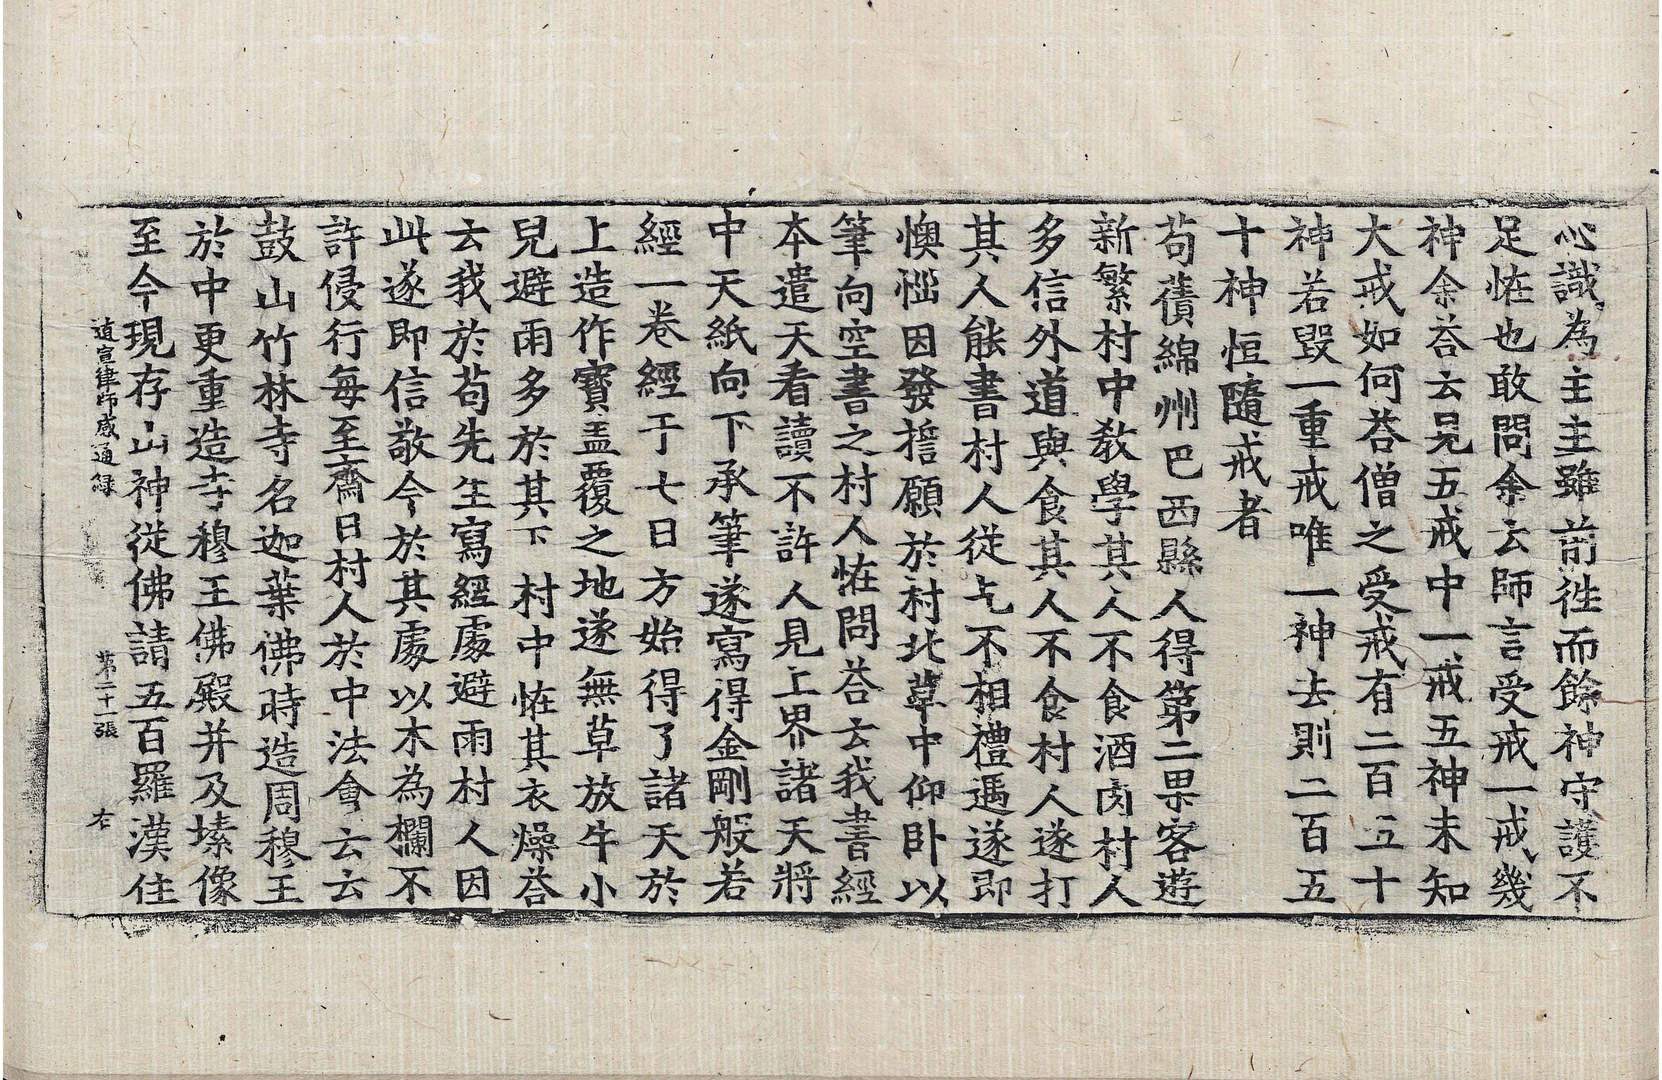 心識為主主雖前往而餘神守護不
足恠也敢問余云師言受戒一戒幾
神余荅云見五戒中一戒五神未知
大戒如何荅僧之受戒有二百五十
神若毀一重戒唯一神去則二百五
十神恒隨戒者
苟蕢綿州巴西縣人得第二果客遊
新繁村中敎學其人不食酒肉村人
多信外道與食其人不食村人遂打
其人能書村人從乞不相禮遇遂即
懊惱因發擔願於村北草中仰卧以
筆向空書之村人恠問荅云我書經
本遣天看讀不許人見上界諸天將
中天紙向下承筆遂寫得金剛般若
經一卷經于七日方始得了諸天於
上造作寶盖覆之地遂無草放牛小
兒避雨多於其下村中恠其衣燥荅
云我於苟先生寫經處避雨村人因
此遂即信敬今於其處以木為欄不
許侵行每至齋日村人於中法會云云
鼓山竹林寺名迦葉佛時造周穆王
於中更重造寺穆王佛殿并及塐像
至今現存山神從佛請五百羅漢住
道宣律師感通録 第二十一張 右